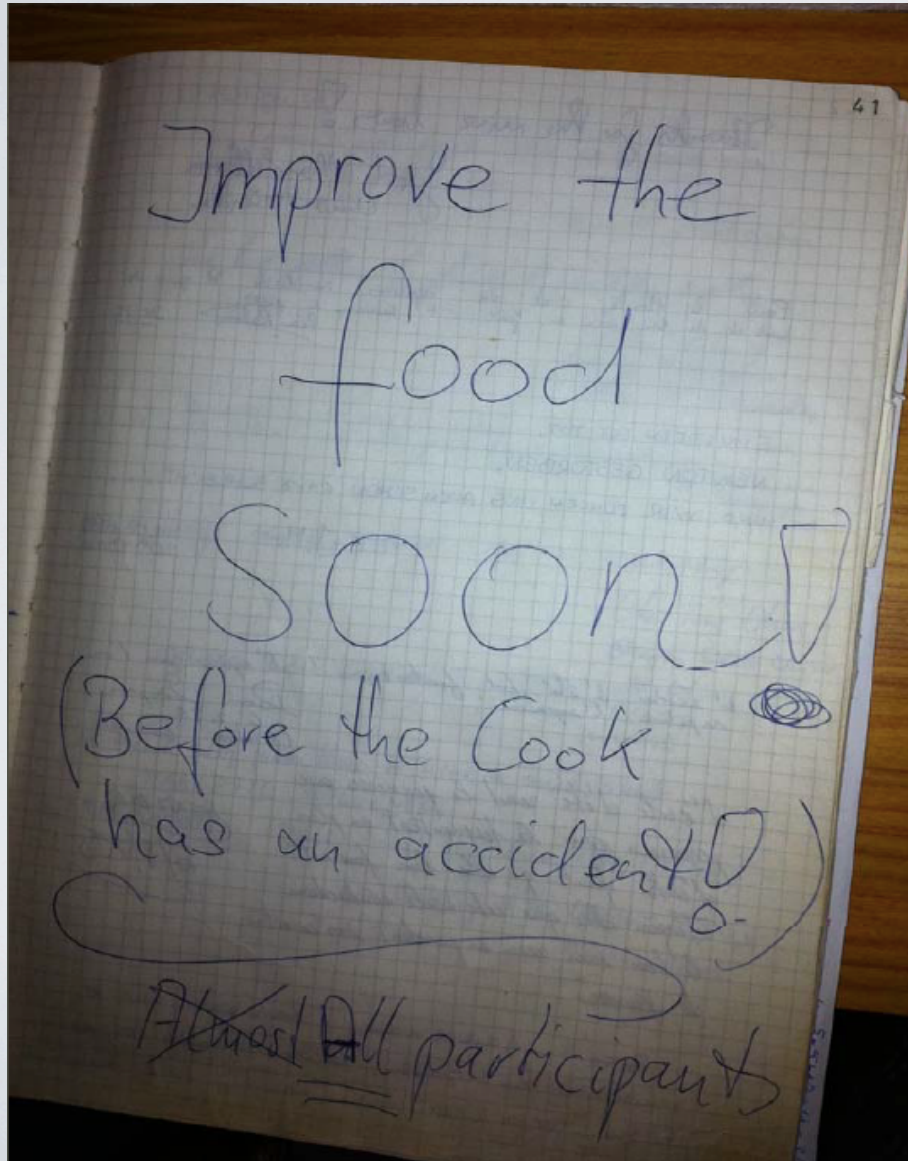 41
Improve the
food
soon!
(Before the Cook
has an accident!)
Almost All participants